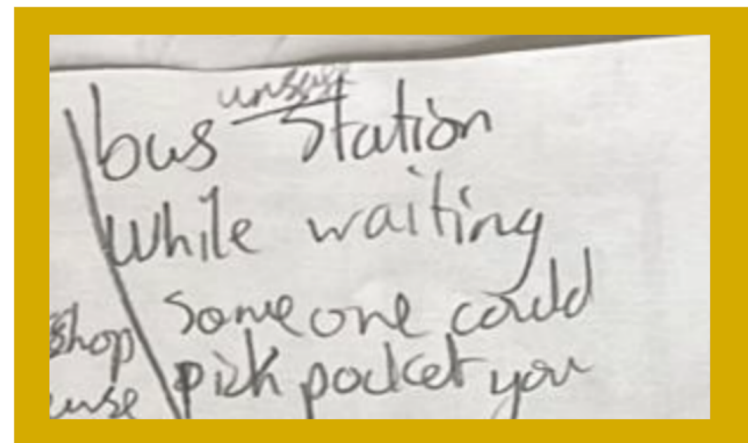 unsafe
bus station
While waiting
Shop
someone could
use
pick pocket you